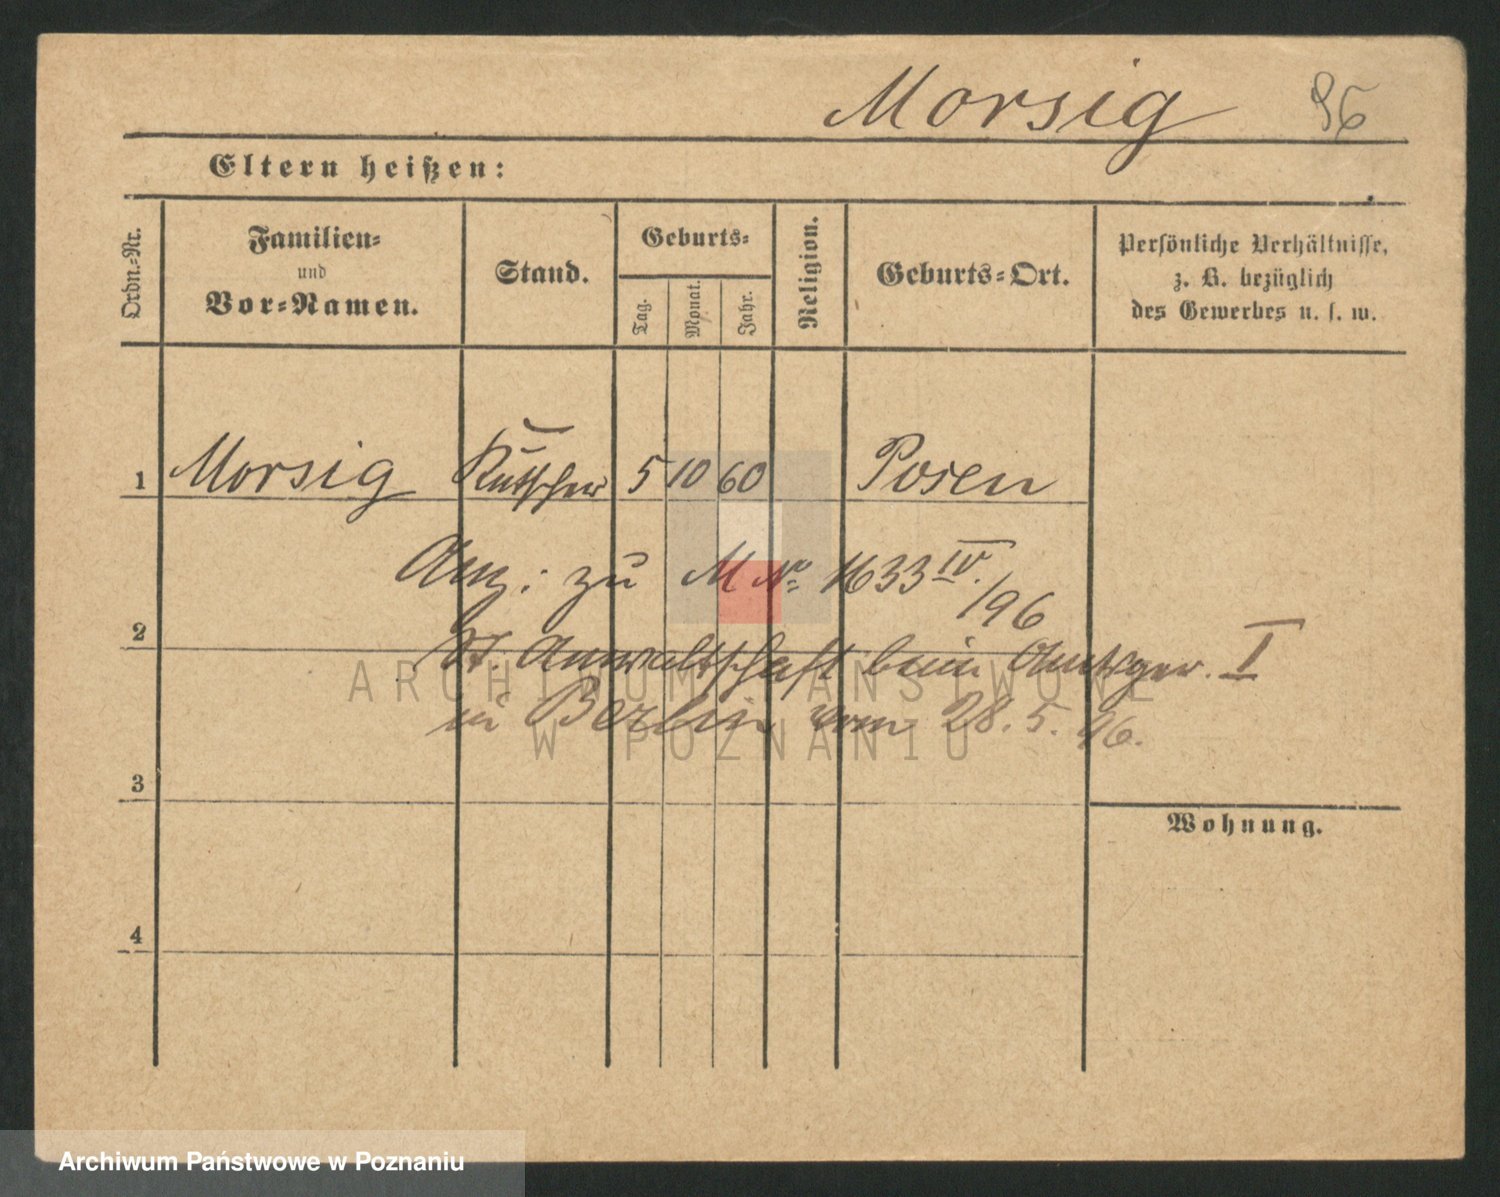 Morsig 96
Eltern heißen:
Ordn.-Nr.
Familien-
und
Vor-Namen.
Stand.
Geburts-
Tag.
Monat.
Jahr.
Religion.
Geburts-Ort.
Persönliche Verhältnisse,
z. B. bezüglich
des Gewerbes u. s. w.
1 Morsig Kutscher 5 10 60 Posen
Anz: zu M No 1633 IV.
/96
2
St. Anwaltschaft beim Amtsger. I
in Berlin vom 28. 5. 96.
ARCHIWUM PAŃSTWOWE
W POZNANIU
3
Wohnung.
4
Archiwum Państwowe w Poznaniu